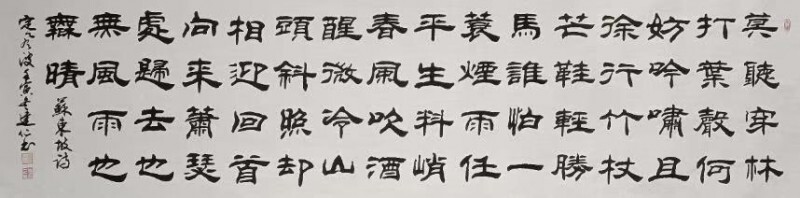 莫聽穿林
打葉聲何
妨吟嘯且
徐行竹杖
芒鞋輕勝
馬誰怕一
蓑煙雨任
平生料峭
春風吹酒
醒微冷山
頭斜照却
相迎回首
向來蕭瑟
處歸去也
無風雨也
無晴
蘇東坡詩
定風波壬寅建仁書